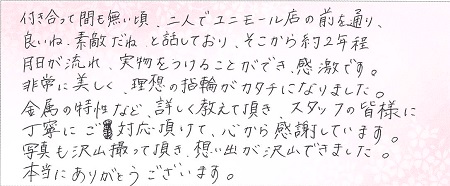 付き合って間も無い頃、二人でユニモール店の前を通り、
良いね、素敵だね、と話しており、そこから約2年程
月日が流れ、実物をつけることができ、感激です。
非常に美しく、理想の指輪がカタチになりました。
金属の特性など、詳しく教えて頂き、スタッフの皆様に
丁寧にご対応頂けて、心から感謝しています。
写真も沢山撮って頂き、想い出が沢山できました。
本当にありがとうございます。